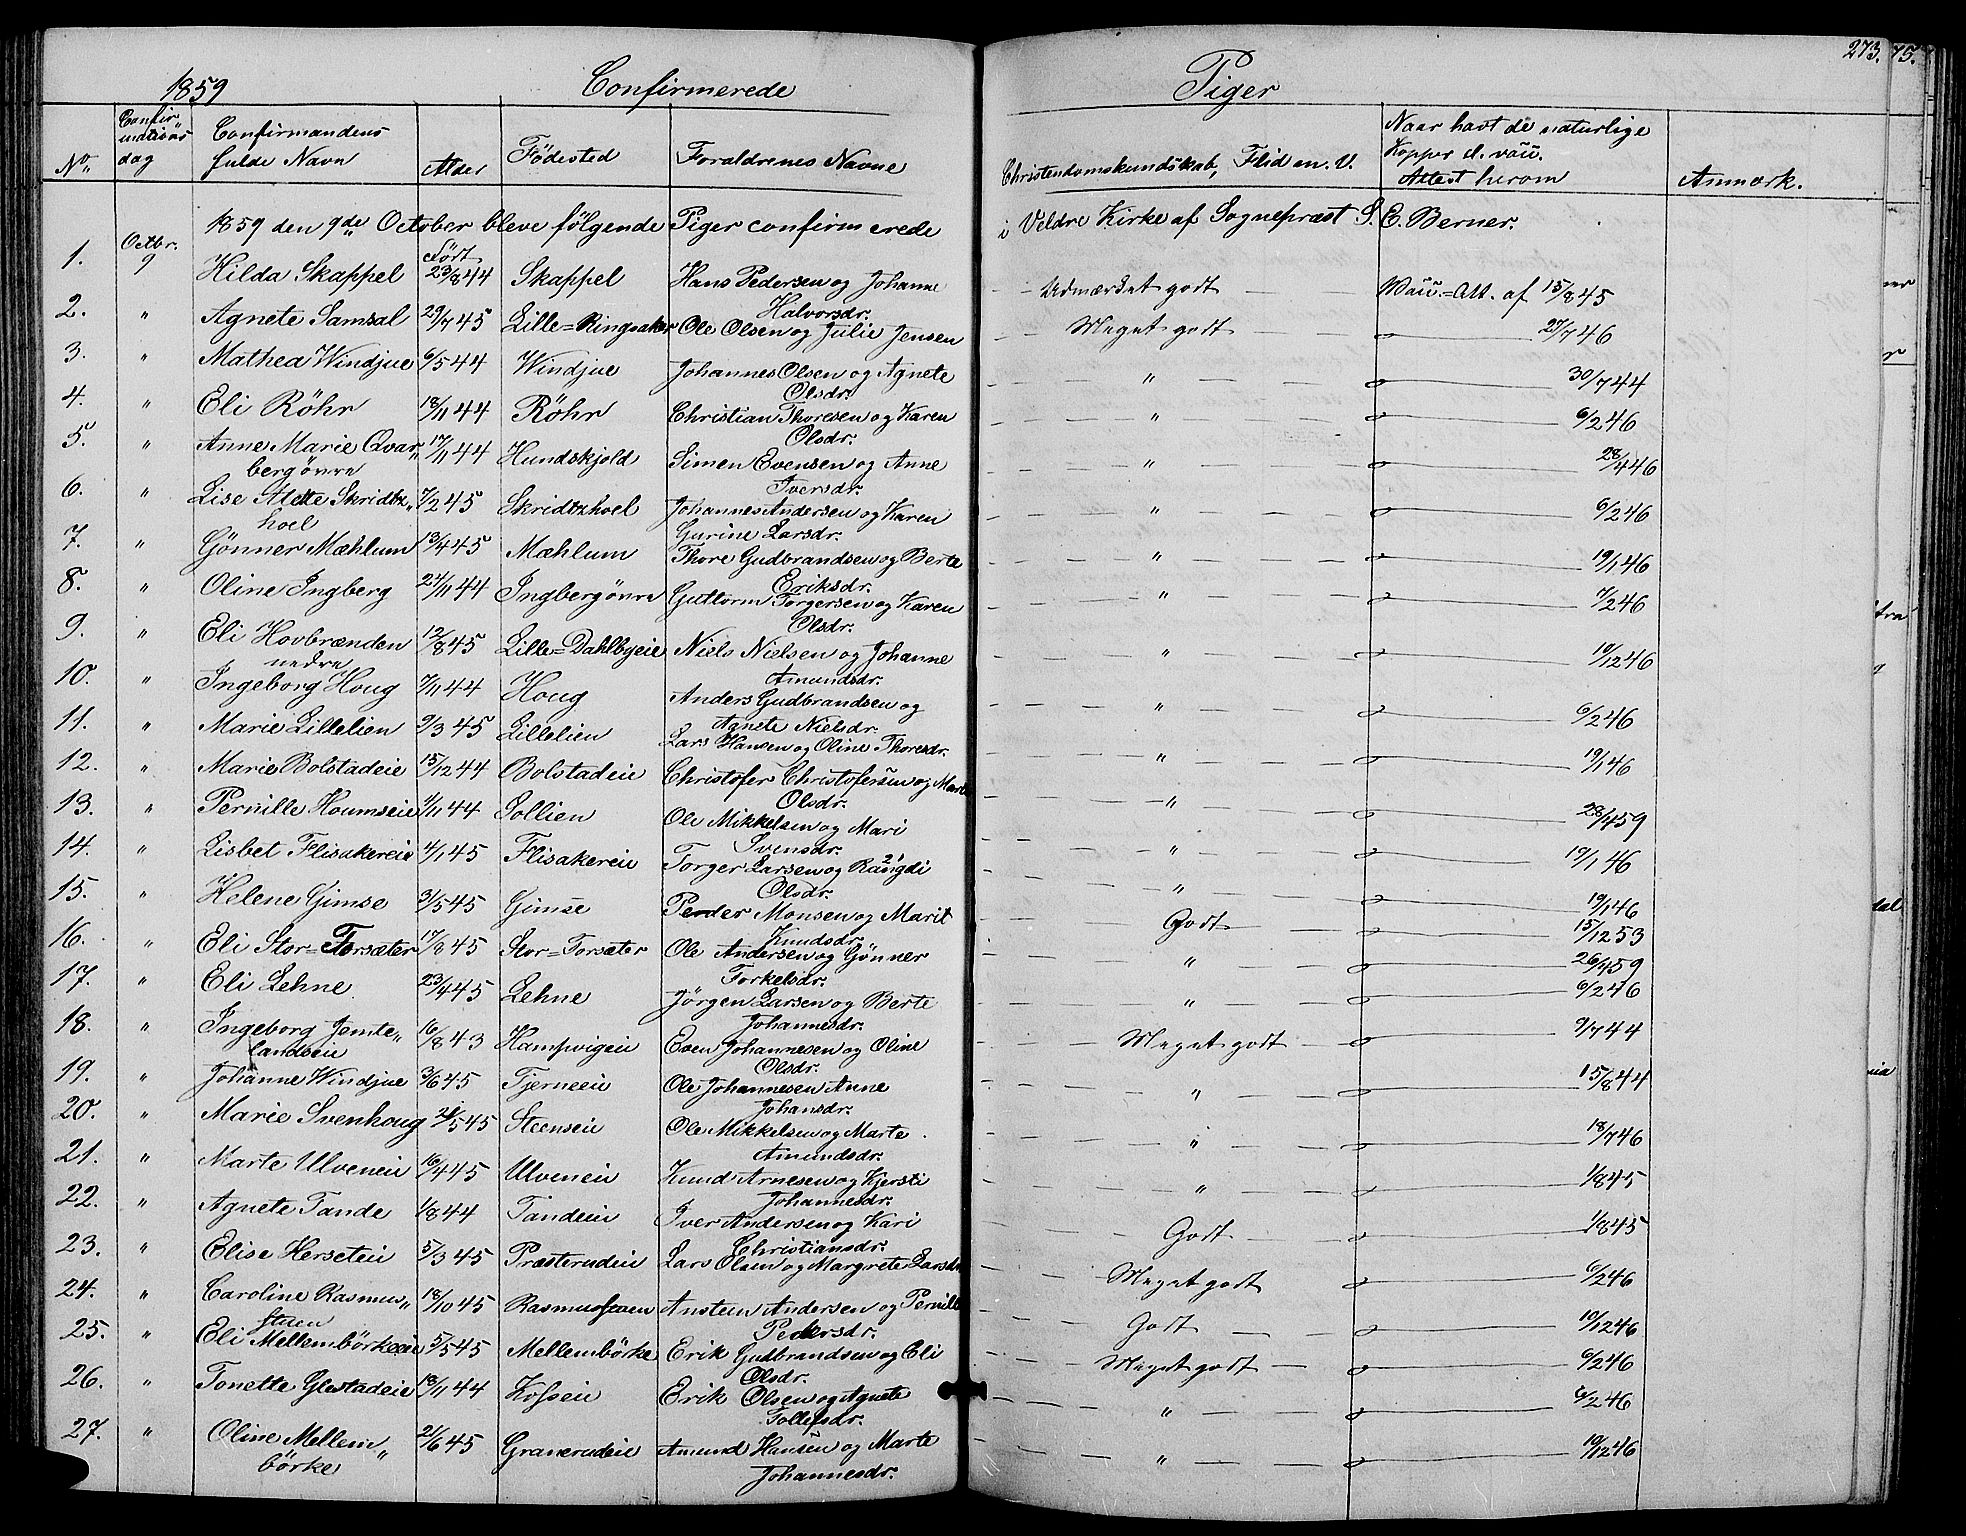 1859 Confirmerede Piger 273. 75.
No. Confirmations dag Confirmandens fulde Navn Alder Födested Forældrenes Navne Christendomskundskab, Flid en. V. Naar havt de naturlige Kopper el. vacc. Attest herom Anmærk.
1859 den 9de October bleve fölgende Piger confirmerede i Veldre Kirke af Sognepræst S. E. Berner.
1. Octbr. 9 Hilda Skappel Födt 23/8 44 Skappel Hans Pedersen og Johanne Halvorsdr. Udmærket godt Vacc.=Att. af 15/8 45
2. " Agnete Samsal 29/7 45 Lille=Ringsaker Ole Olsen og Julie Jensen Meget godt 27/7 46
3. " Mathea Windjue 6/5 44 Windjue Johannes Olsen og Agnete Olsdr. " 30/7 44
4. " Eli Röhr 18/11 44 Röhr Christian Thoresen og Karen Olsdr. " 6/2 46
5. " Anne Marie Qvar„ bergövre 17/11 44 Hundskjold Simen Evensen og Anne Iversdr. " 28/4 46
6. " Lise Alette Skridtz„ hoel 7/2 45 Skridtzhoel Johannes Andersen og Karen Gurine Larsdr. " 6/2 46
7. " Gönner Mæhlum 13/4 45 Mæhlum Thore Gudbrandsen og Berte Eriksdr. " 19/1 46
8. " Oline Ingberg 24/11 44 Ingbergövre Guttorm Torgersen og Karen Olsdr. " 7/2 46
9. " Eli Hovbrænden nedre 12/8 45 Lille=Dahlbyeie Niels Nielsen og Johanne Amundsdr. " 10/12 46
10. " Ingeborg Houg 7/11 44 Houg Anders Gudbrandsen og Agnete Nielsdr. " 6/2 46
11. " Marie Lillelien 9/3 45 Lillelien Lars Hansen og Oline Thoresdr. " 19/1 46
12. " Marie Bolstadeie 15/12 44 Bolstadeie Christofer Christofersen og Marte Olsdr. " 28/4 59
13. " Pernille Houmseie 4/11 44 Sollien Ole Mikkelsen og Mari Svensdr. " 19/1 46
14. " Lisbet Flisakereie 4/1 45 Flisakereie Torger Larsen og Rangdi Olsdr. " 19/1 46
15. " Helene Gimse 3/5 45 Gimse Peder Monsen og Marit Knudsdr. Godt 15/12 53
16. " Eli Stor=Forsæter 17/8 45 Stor=Forsæter Ole Andersen og Gönner Torkelsdr. " 26/4 59
17. " Eli Lehne 23/4 45 Lehne Jörgen Larsen og Berte Johannesdr. " 6/2 46
18. " Ingeborg Jemte„ landseie 16/8 43 Kampvigeie Even Johannesen og Oline Olsdr. Meget godt 9/7 44
19. " Johanne Windjue 3/6 45 Tjerneeie Ole Johannesen Anne Johansdr. " 15/8 44
20. " Marie Svenhoug 21/5 45 Steenseie Ole Mikkelsen og Marte Amundsdr. " 18/7 46
21. " Marte Ulveneie 16/4 45 Ulveneie Knud Arnesen og Kjersti Johannesdr. " 1/8 45
22. " Agnete Tande 1/8 44 Tandeeie Iver Andersen og Kari Christiansdr. Godt 1/8 45
23. " Elise Herseteie 5/3 45 Præsterudeie Lars Olsen og Margrete Larsdr Meget godt 6/2 46
24. " Caroline Rasmus„ stuen 18/10 45 Rasmusstuen Ansten Andersen og Pernille Pedersdr. Godt 10/12 46
25. " Eli Mellembörkeeie 5/5 45 Mellembörke Erik Gudbrandsen og Eli Olsdr. Meget godt 6/2 46
26. " Tonette Glestadeie 18/11 44 Kosseie Erik Olsen og Agnete Tollefsdr. " 6/2 46
27. " Oline Mellem„ börke 21/6 45 Granerudeie Amund Hansen og Marte Johannesdr. " 10/12 46